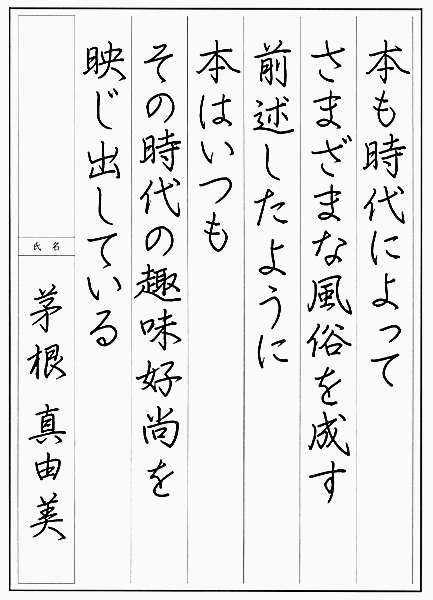 本も時代によって
さまざまな風俗を成す
前述したように
本はいつも
その時代の趣味好尚を
映じ出している
氏名
茅根 真由美